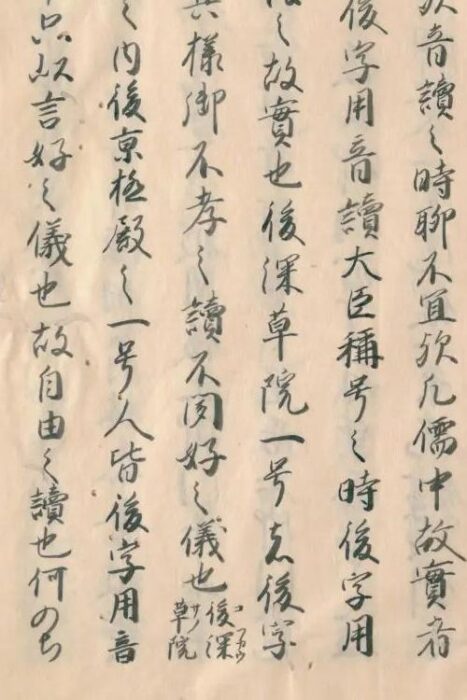 音讀之時聊不宜欤凡儒中故實者
後字用音讀大臣稱号之時後字用
之故實也後深草院一号者後字
樣御不孝之讀不図好之儀也後深草院
之内後京極殿之一号人皆後字用音
以言好之儀也故自由之讀也何